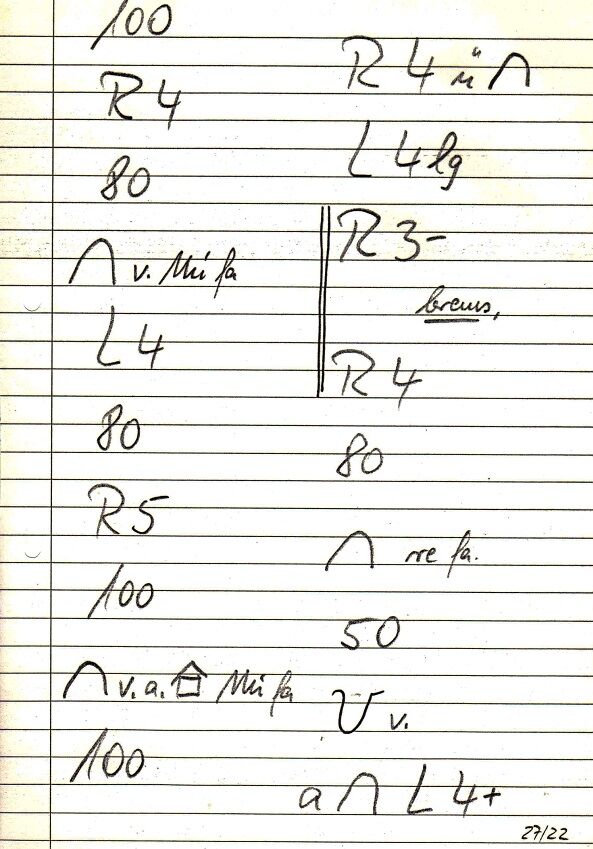 100
R 4
80
∩ v. Mi fa
L 4
80
R 5
100
∩ v. a. Mi fa
100
R 4 ü ∩
L 4 lg
R 3-
brems,
R 4
80
∩ re fa.
50
U v.
a ∩ L 4+
27/22